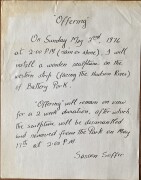 "Offering"
On Sunday May 2nd 1976
at 2:00 P.M. (rain or shine), I will
install a wooden sculpture on the
western strip (facing the Hudson River)
of Battery Park.
"Offering" will remain on view
for a 2 week duration, after which
the sculpture will be dismantled
and removed from the Park on May
17th at 2:00 P.M.